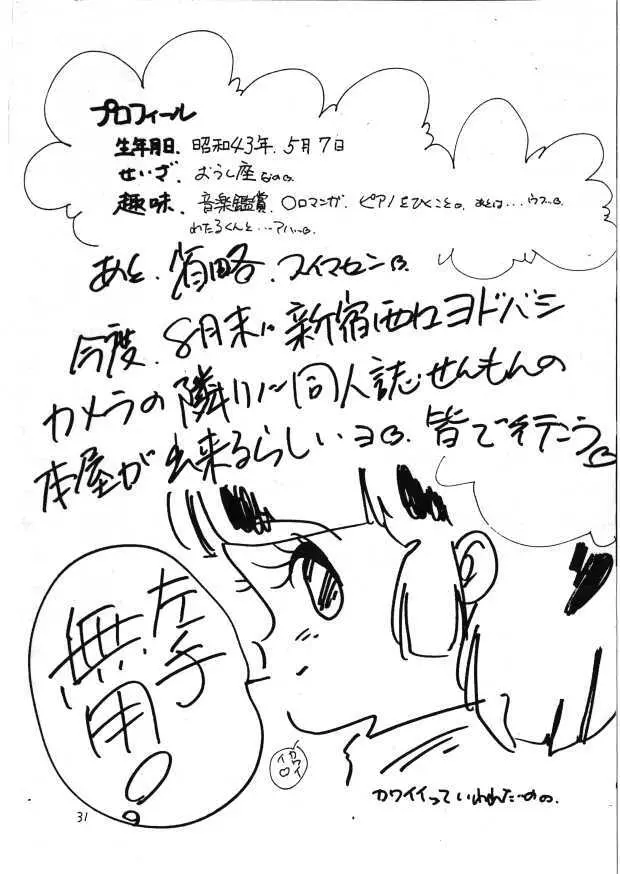 プロフィール
生年月日、昭和43年、5月7日
せいざ、おうし座なの
趣味、音楽鑑賞、〇ロマンガ、ピアノをひくこと。あとは…ウフ
わたるくんと…アハ
あと、省略、スイマセン
今度、8月末に新宿西口ヨドバシ
カメラの隣りに同人誌せんもんの
本屋が出来るらしいヨ 皆で行こう
左手
無用
カワイイ
カワイイっていわれたいの
31